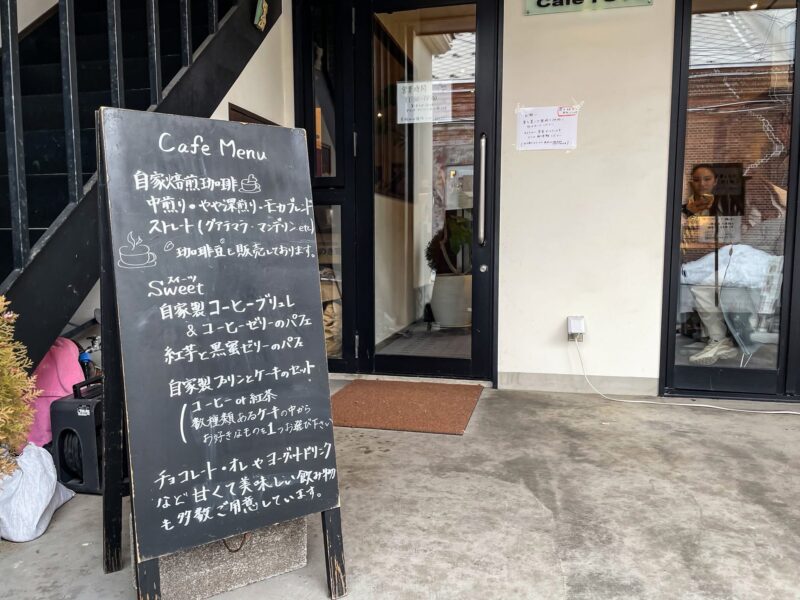 Cafe Menu
自家焙煎珈琲
中煎り・やや深煎り・モカブレンド
ストレート(グアテマラ・マンデリン etc)
珈琲豆も販売しております。
スイーツ
Sweet
自家製コーヒーブリュレ
&コーヒーゼリーのパフェ
紅芋と黒蜜ゼリーのパフェ
自家製プリンとケーキのセット
コーヒー or 紅茶
数種類あるケーキの中から
お好きなものを1つお選び下さい
チョコレート・オレやヨーグルトドリンク
など甘くて美味しい飲み物
も多数ご用意しています。
Cafe
営業時間